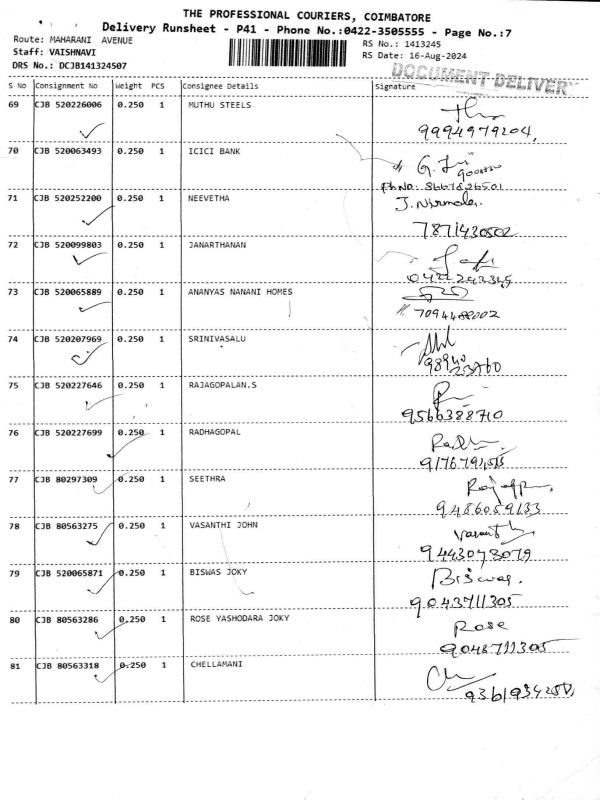 THE PROFESSIONAL COURIERS, COIMBATORE
Delivery Runsheet - P41 - Phone No.:0422-3505555 - Page No.:7
Route: MAHARANI AVENUE RS No.: 1413245
Staff: VAISHNAVI RS Date: 16-Aug-2024
DRS No.: DCJB141324507
DOCUMENT DELIVER
S No Consignment No Weight PCS Consignee Details Signature
69 CJB 520226006 0.250 1 MUTHU STEELS
9994979204.
70 CJB 520063493 0.250 1 ICICI BANK
Ph No: 8667826501
71 CJB 520252200 0.250 1 NEEVETHA J. Nirmala.
7871430502
72 CJB 520099803 0.250 1 JANARTHANAN
0422 242345
73 CJB 520065889 0.250 1 ANANYAS NANANI HOMES
7094488002
74 CJB 520207969 0.250 1 SRINIVASALU
98940
23760
75 CJB 520227646 0.250 1 RAJAGOPALAN.S
9566388710
76 CJB 520227699 0.250 1 RADHAGOPAL
77 CJB 80297309 0.250 1 SEETHRA
9486059133
78 CJB 80563275 0.250 1 VASANTHI JOHN
9443073079
79 CJB 520065871 0.250 1 BISWAS JOKY Biswas.
9043711305
80 CJB 80563286 0.250 1 ROSE YASHODARA JOKY Rose
9048711305
81 CJB 80563318 0.250 1 CHELLAMANI